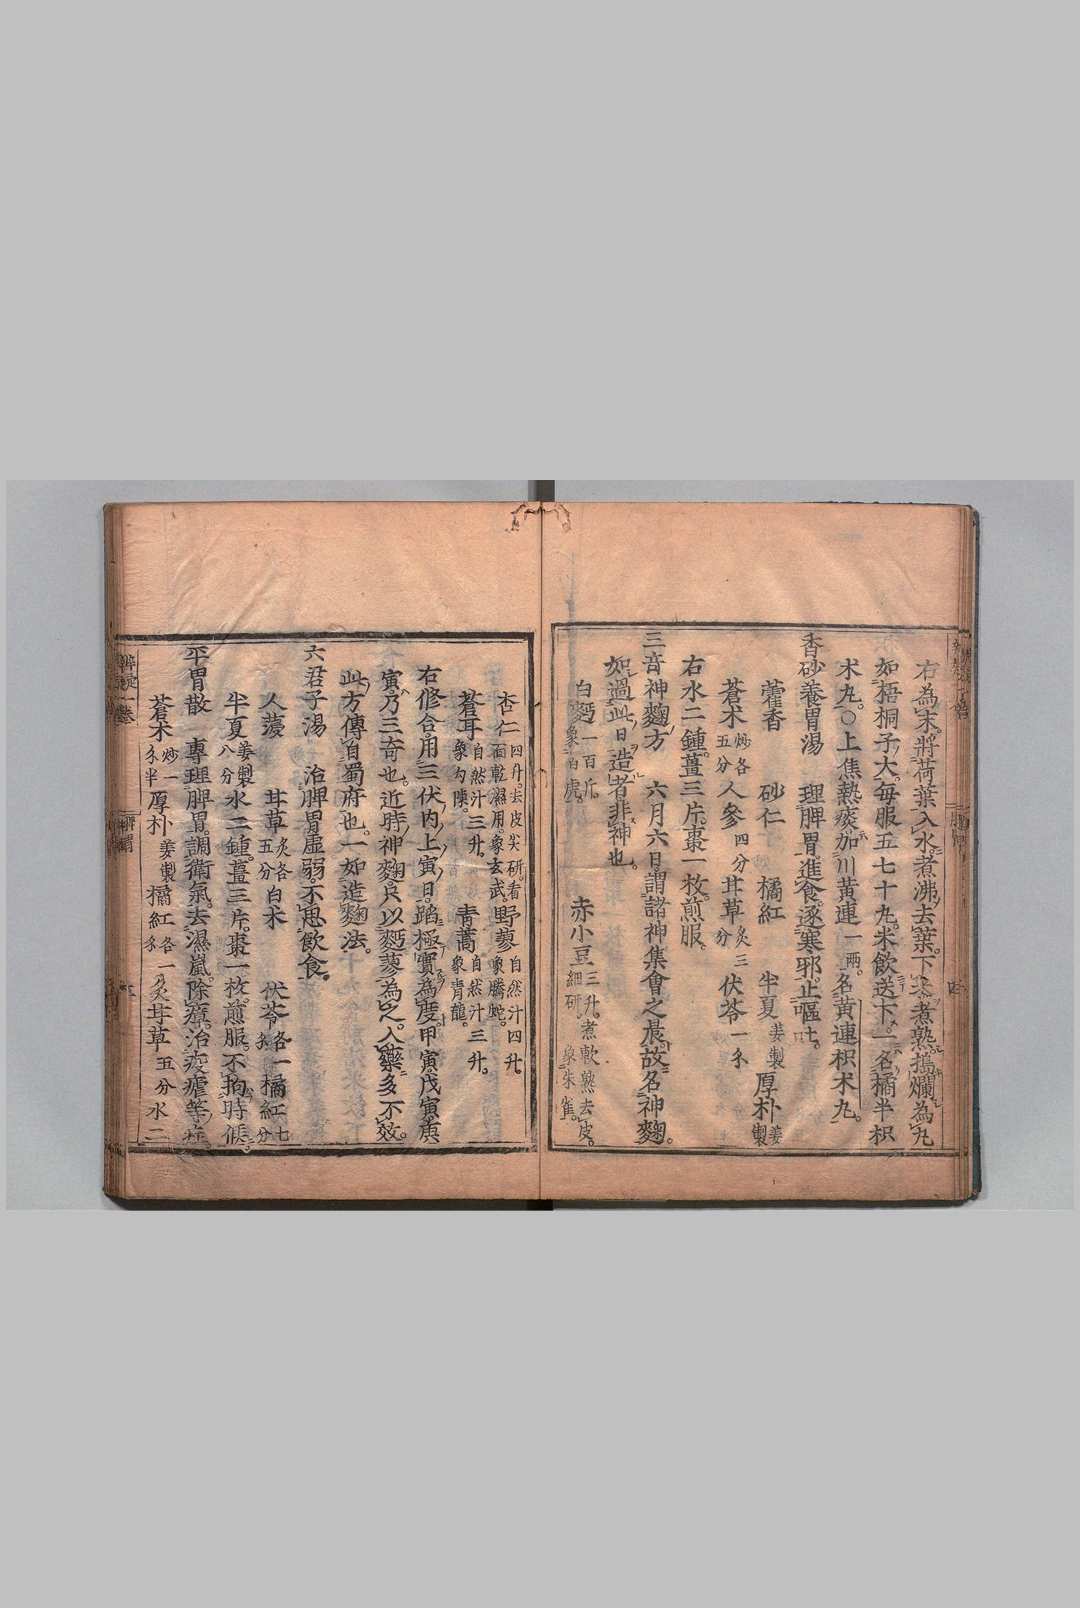 右為末將荷葉入水煮沸去葉下米煮熟搗爛為丸
如梧桐子大每服五七十丸米飲送下一名橘半枳
朮丸○上焦熱痰加川黃連一兩名黃連枳朮丸
香砂養胃湯 理脾胃進食逐寒邪止嘔吐
藿香 砂仁 橘紅 半夏姜製 厚朴姜製
蒼朮炒各五分 人參四分 甘草炙三分 伏苓一錢
右水二鍾薑三片棗一枚煎服
三奇神麴方 六月六日謂諸神集會之辰故名神麴
如過此日造者非神也
白麪一百斤象白虎 赤小豆三升煮軟熟去皮細研象朱雀
杏仁四升去皮尖研看面乾濕用象玄武 野蓼自然汁四升象騰蛇
蒼耳自然汁三升象勾陳 青蒿自然汁三升象青龍
右修合用三伏內上寅日踏極實為度甲寅戊寅庚
寅乃三奇也近時神麴只以麪蓼為之入藥多不效
此方傳自蜀府也一如造麴法
六君子湯 治脾胃虛弱不思飲食
人薓 甘草炙各五分 白朮 伏苓各一錢 橘紅七分
半夏姜製八分 水二鍾薑三片棗一枚煎服不拘時候
平胃散 專理脾胃調衛氣去濕嵐除瘴治疫瘧等
蒼朮炒一錢半 厚朴姜製 橘紅各一錢 炙甘草五分 水二
辨疑一卷
脾胃